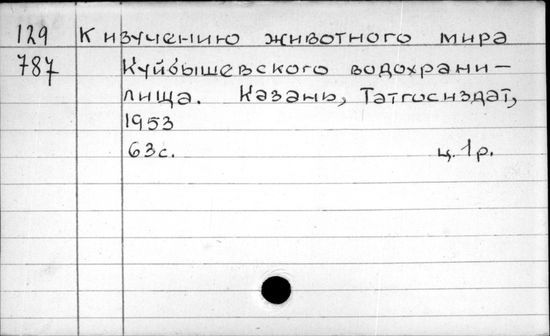 129 К изучению животного мира
787 Куйбышевского водохрани-
лища. Казань, Татгосиздат,
1953
63с. ц. 1р.